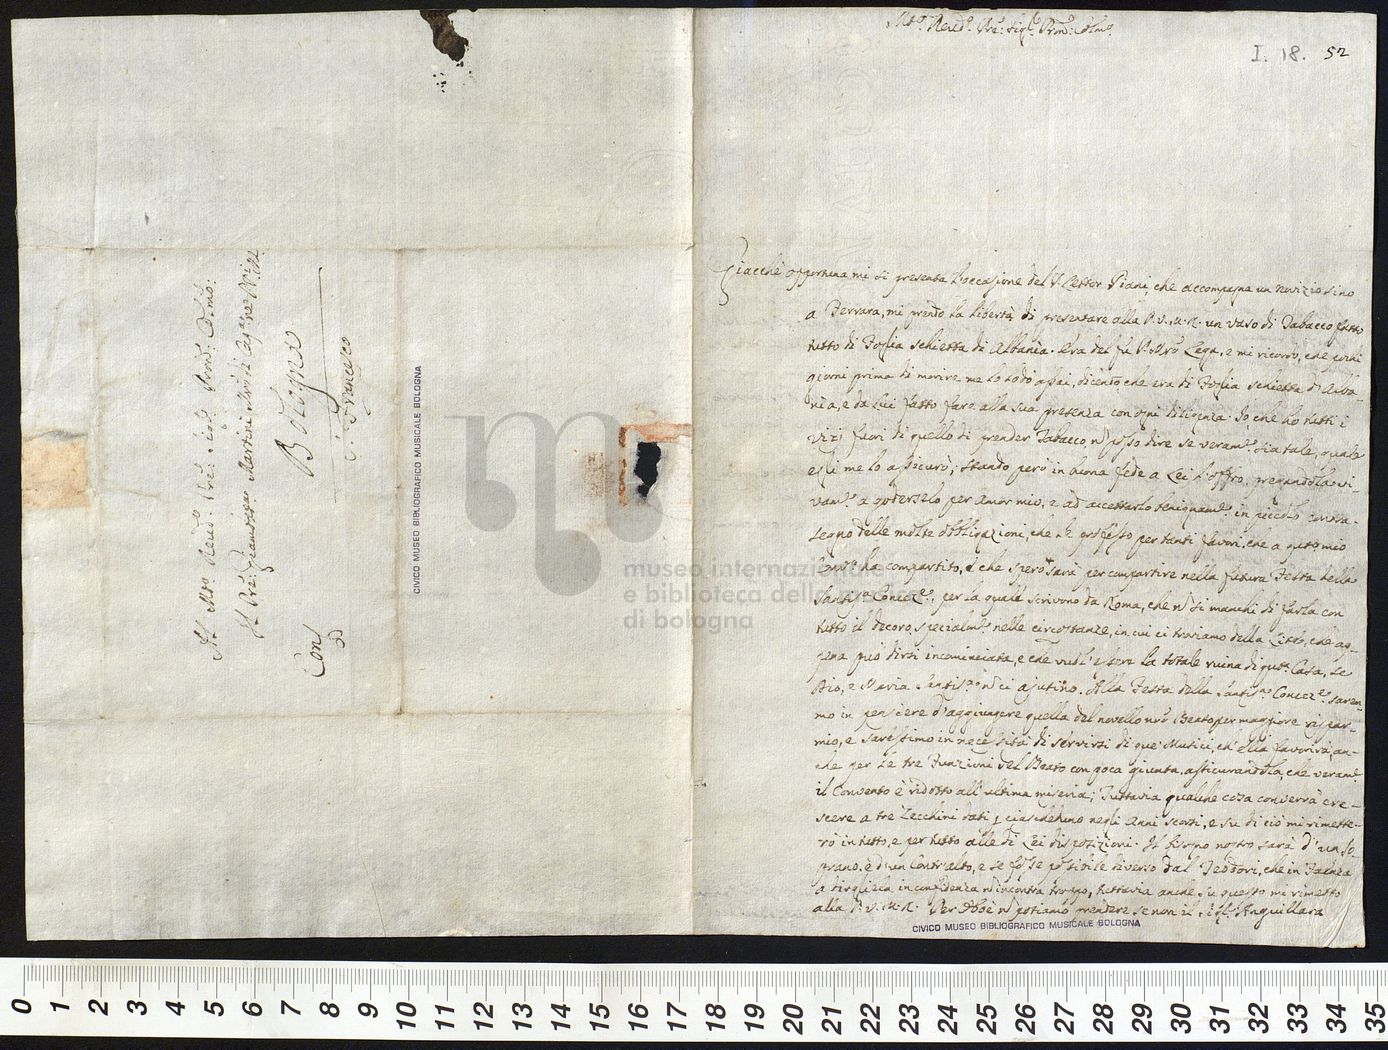 Mto. Revdo. Pre. Sigr. Prone. Colmo.
I. 18. 52
Giacchè opportuna mi si presenta l'occasione del P. Lettor Piani, che accompagna un novizio sino
a Ferrara, mi prendo la libertà di presentare alla P.V.M.R. un vaso di Tabacco fatto
tutto di Foglia schietta di Albania. Era del fu P. Mro Lega, e mi ricordo, che
giorni prima di morire me lo lodò assai, dicendo che era di Foglia schietta d'Alba-
nia, e da Lui fatto fare alla sua presenza con ogni diligenza. Io che ho tutti i
vizj fuori di quello di prender Tabacco, nō posso dire se veramte. sia tale, quale
egli me lo assicurò; stando però in buona fede a Lei l'offro, pregandola vi-
vamte. a goderselo per Amor mio, e ad accettarlo benignamte. in piccolo contra-
segno delle molte obbligazioni, che Le professo per tanti favori, che a questo mio
Convto. ha compartito, e che spero sarà per compartire nella futura Festa della
Santissa. Concezne., per la quale scrivono da Roma, che nō si manchi di farla con
tutto il decoro, specialmte. nelle circostanze, in cui ci troviamo della Lite, che ap-
pena può dirsi incominciata, e che vuol essere la totale ruina di questa Casa, se
Dio, e Maria Santissa. nō ci ajutino. Alla Festa della Santissa. Concezne. sarem-
mo in pensiere d'aggiungere quella del novello nrō Beato per maggiore rispar-
mio, e saressimo in necessità di servirsi di que' Musici, ch'ella favorirà, an-
che per le tre Funzioni del Beato con poca giunta, assicurandola, che veramte.
il Convento è ridotto all'ultima miseria; Tuttavia qualche cosa converrà cre-
scere a trè Zecchini dati p ciascheduno negli Anni scorsi, e su di ciò mi rimette-
rò in tutto, e per tutto alle di Lei disposizioni. Il bisogno nostro sarà d'un So-
prano, e d'un Contr'alto, e se fosse possibile diverso dal Teodori, che in Faenza
a dirgliela in confidenza nō incontra troppo, tuttavia anche su questo mi rimetto
alla P.V.M.R. Per Oboè nō potiamo prendere se non il Sigr. Anguillara
CIVICO MUSEO BIBLIOGRAFICO MUSICALE BOLOGNA
Al Mto. Revdo. Pre. Sigr. Prone. Colmo.
Il Pre. Giambatta. Martini Mro. di Cappa.
Bologna
S. Francesco
CIVICO MUSEO BIBLIOGRAFICO MUSICALE BOLOGNA
museo internazionale
e biblioteca della musica
di bologna
0 1 2 3 4 5 6 7 8 9 10 11 12 13 14 15 16 17 18 19 20 21 22 23 24 25 26 27 28 29 30 31 32 33 34 35